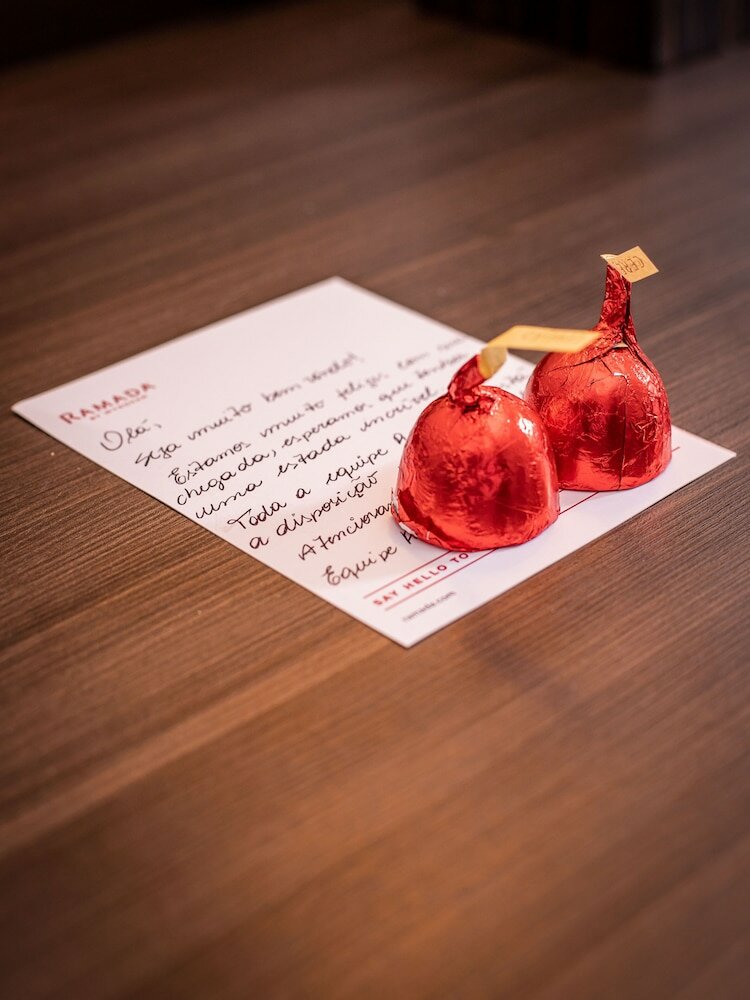 RAMADA
Olá,
Seja muito bem vindo!
Estamos muito felizes com sua
chegada, esperamos que tenham
uma estada incrível
Toda a equipe
a disposição
Equipe
SAY HELLO TO
ramada.com